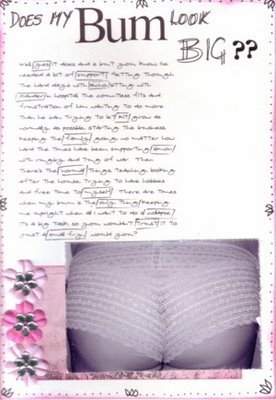 DOES MY Bum LOOK
BIG ??
well yes it does and a but you know I've
needed a lot of support getting through
the hard days with echo sitting with
in hospital the countless fits and
frustration of him wanting to do more
than he can. Trying to let kit grow as
normally as possible starting the business
keeping the family going no matter how
hard the times have been supporting
with rugby and tug of war. Then
there's the normal things teaching looking
after the house trying to have hobbies
and free time to myself. There are times
when my bum is the only thing keeping
me upright when all I want to do is collapse
its a big task so you wouldn't trust it to
just a small would you?